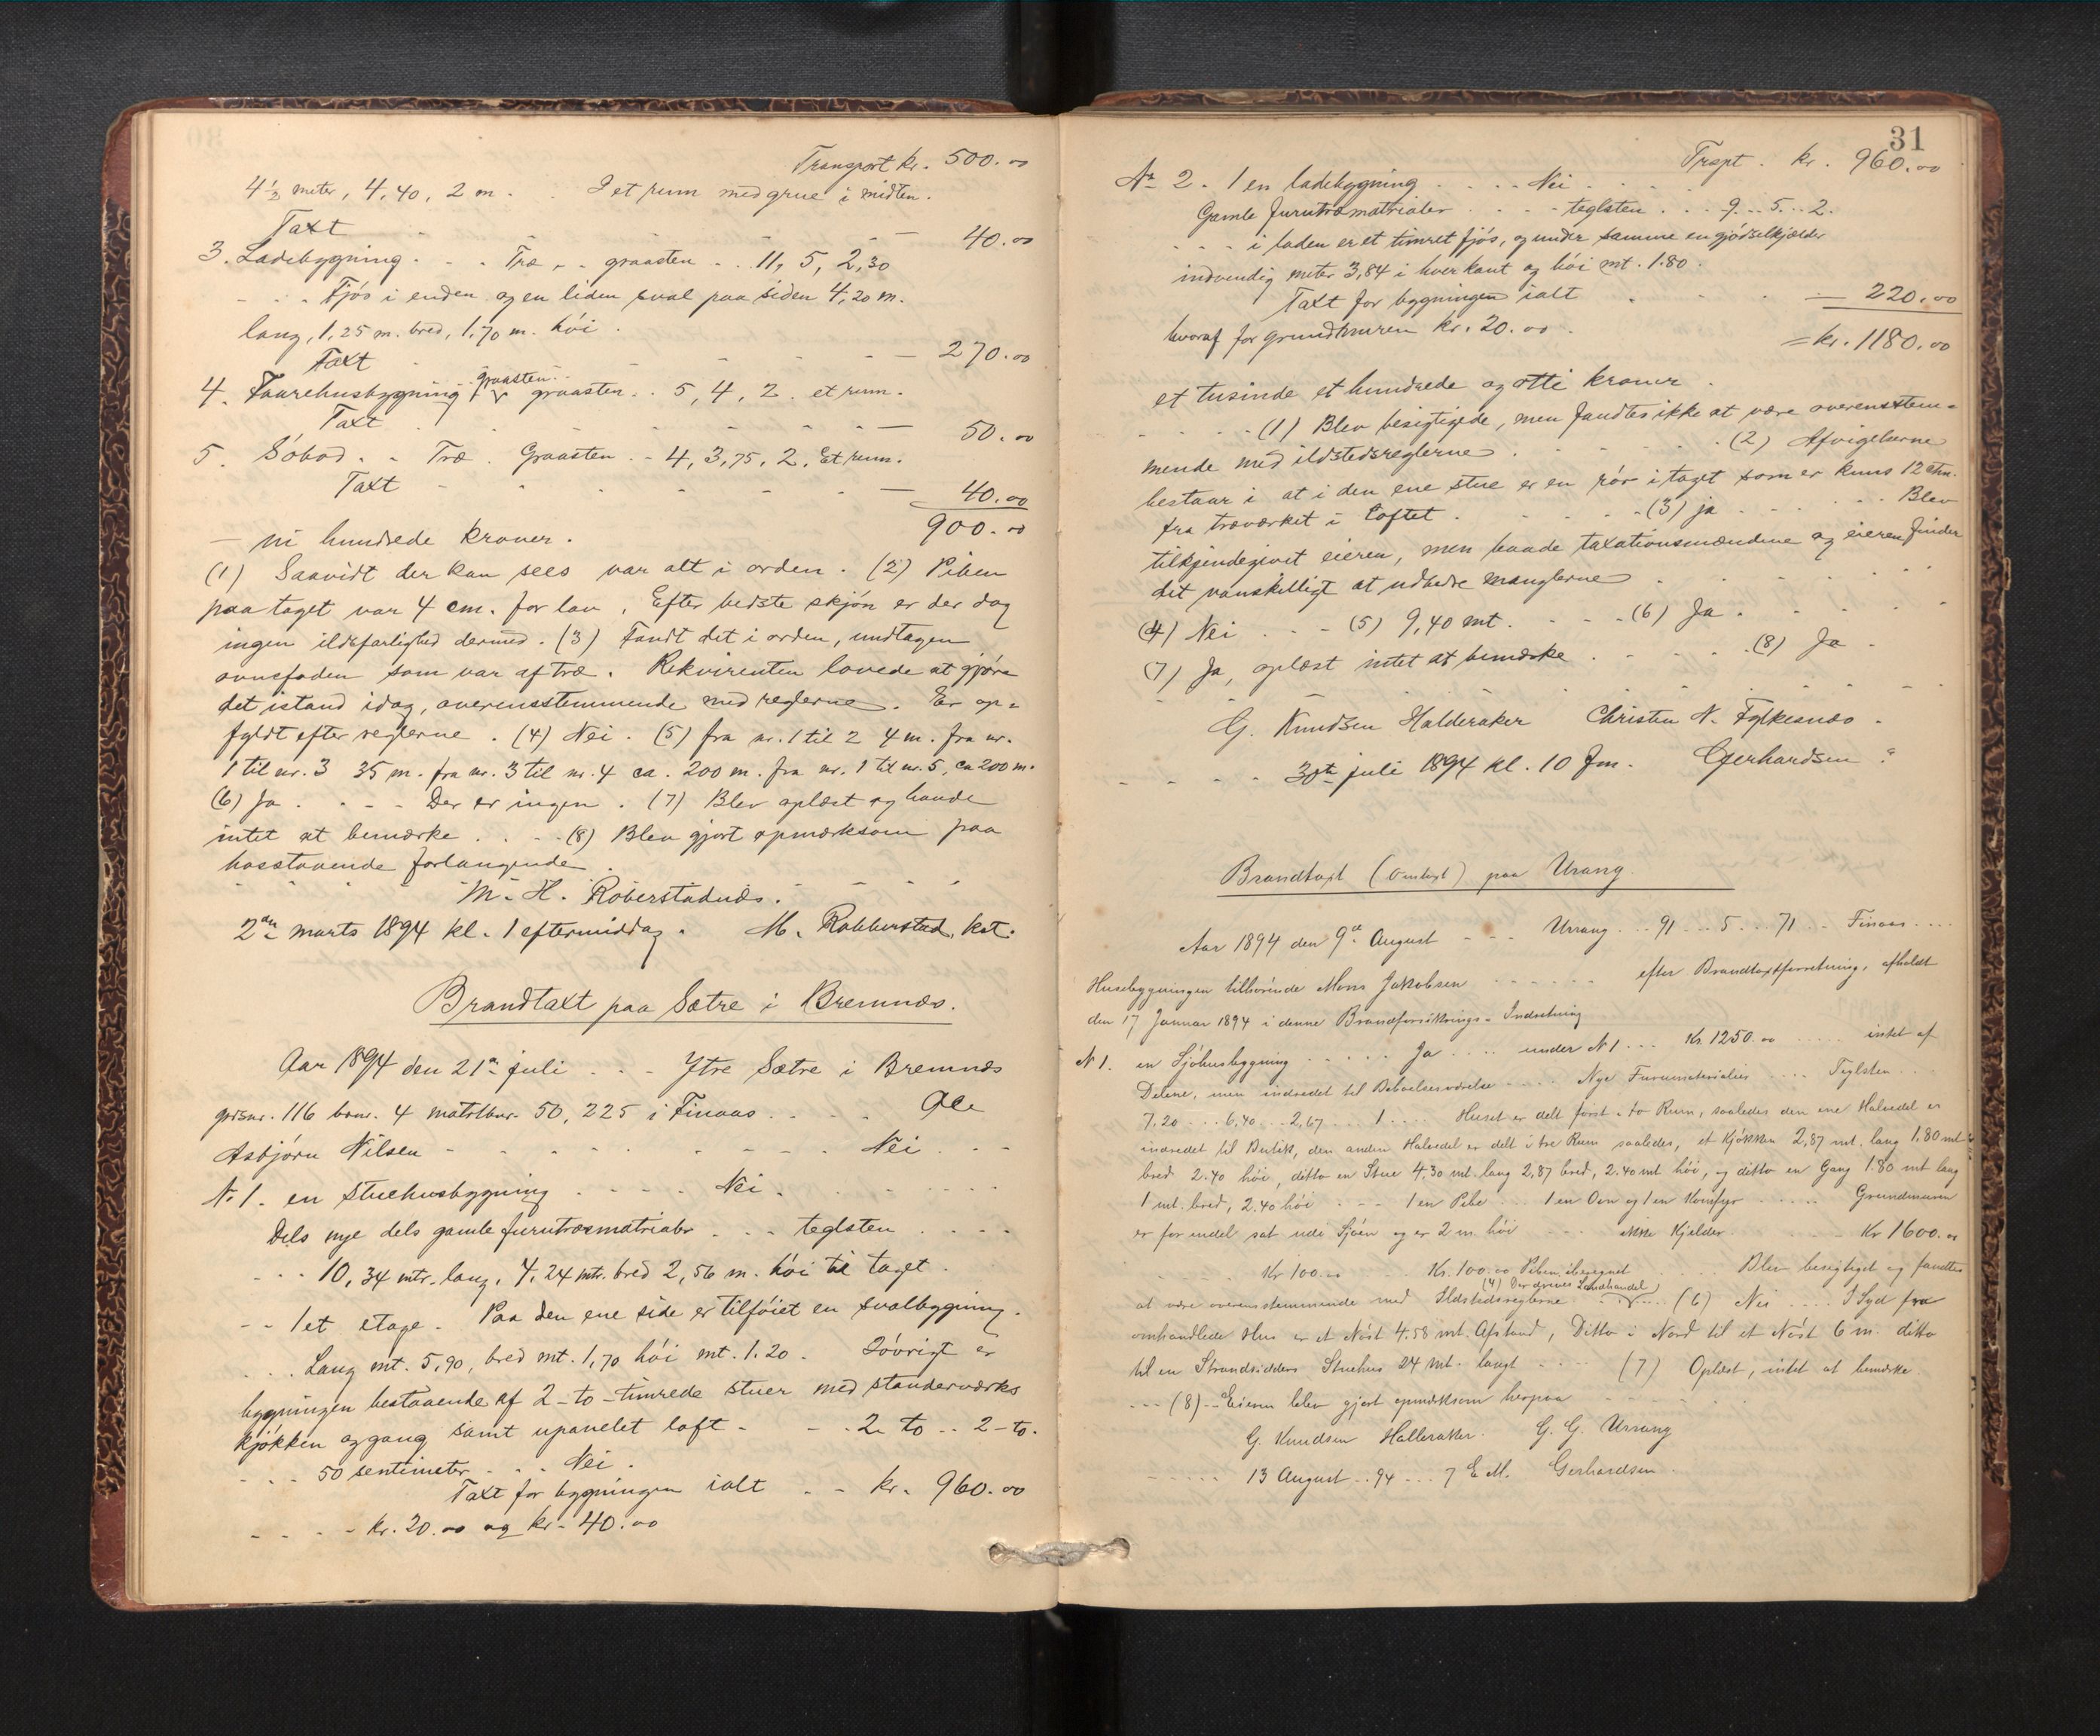 Transport kr. 500.00
4 1/2 meter, 4,40, 2 m. . I et rum med grue i midten.
Taxt - - - - 40.00
3. Ladebygning. - - Træ - - graasten - .. 11, 5, 2,30
- . - Fjós i enden og en liden sval paa siden 4,20 m.
lang, 1,25 m. bred, 1,70 m. hói.
Taxt - - - - 270.00
graasten
4. Faarehusbygning graasten . . 5, 4, 2. et rum.
Taxt - - - - 50.00
5. Sóbod. - Træ. Graasten. - 4, 3,75, 2. Et rum.
Taxt - - - - 40.00
— ni hundrede kroner. 900.00
(1) Saavidt der kan sees var alt i orden. (2) Piben
paa taget var 4 cm. for lav. Efter bedste skjón er der dog
ingen ildsfarlighed dermed. (3) Fandt det i orden, undtagen
ovnsfoden som var af træ. Rekvirenten lovede at gjóre
det istand idag, overensstemmende med reglerne. Er op-
fyldt efter reglerne. (4) Nei. (5) fra nr. 1 til 2 4 m. fra nr.
1 til nr. 3 35 m. fra nr. 3 til nr. 4 ca. 200 m. fra nr. 1 til nr. 5, ca 200 m.
(6) Ja. - - - Der er ingen. (7) Blev oplæst og havde
intet at bemærke . . - - (8) Blev gjort opmærksom paa
hosstaaende forlangende.
M. H. Róberstadnæs.
2den marts 1894 kl. 1 eftermiddag. M. Robberstad, kst.
Brandtaxt paa Sætre i Bremnæs.
Aar 1894 den 21de juli . . - Ytre Sætre i Bremnæs
gdrsnr. 116 brnr. 4 matrlnr. 50, 225 i Finaas . . . . Ole
Asbjórn Nilsen - - - - - - - Nei . - -
No. 1. en stuehusbygning . . . . Nei . . . . .
Dels nye dels gamle furutræmatrialer . . - teglsten . . . .
- . . 10,34 mtr. lang, 4,24 mtr. bred 2,56 m. hói til taget .
- - 1 et etage. Paa den ene side er tilfóiet en svalbygning.
. . . Lang mt. 5,90, bred mt. 1,70 hói mt. 1.20 . Ióvrigt er
bygningen bestaaende af 2 - to - timrede stuer med standerværks
kjókken og gang samt upanelet loft - - - . 2 to . . 2 - to.
- . . . 50 sentimeter . . . Nei .
Taxt for bygningen ialt . - kr. 960.00
- - - - kr. 20.00 og kr. 40.00
31
Trspt. kr. 960.00
No 2. 1 en ladebygning . . . . Nei . . .
Gamle furutræmatrialer . . . - teglsten . . . 9 . . 5 . . 2.
- - - i laden er et timret fjós, og under samme en gjódselkjælder
indvendig meter 3,84 i hver kant og hói mt. 1.80.
Taxt for bygningen ialt . . . — 220.00
hvoraf for grundmuren kr. 20.00 . = kr. 1180.00
et tusinde et hundrede og otti kroner .
- . . . (1) Blev besigtigede, men fandtes ikke at være overensstem-
mende med ildstedsreglerne . . . . . (2) Afvigelserne
bestaar i at i den ene stue er en rór i taget som er kuns 12 ctm.
fra træværket i Loftet . . . . . (3) ja . . . . Blev
tilkjendegivet eieren, men baade taxationsmændene og eieren finder
det vanskelligt at udbedre manglerne . . . . .
(4) Nei . . . - (5) 9,40 mt. . . - . (6) Ja . . .
(7) Ja, oplæst intet at bemærke . . . . . (8) Ja .
G. Knudsen Halderaker Christen N. Fylkesnæs -
- - - - 30te juli 1894 kl. 10 fm. Gerhardsen
Brandtaxt (omtaxt) paa Urang.
Aar 1894 den 9de August - - - Urang . . 91 . . 5 . . 71 . . Finaas . . . .
Husebygningen tilhørende Mons Jakobsen . . . . . . efter Brandtaxtforretning, afholdt
den 17 Januar 1894 i denne Brandforsikrings - Indretning
N 1. en Sjóhusbygning . . . . . Ja . . . . under N 1 . . . Kr. 1250.00 . . . . . intet af
Delene, men indredet til Beboelsesværelse . . . . . Nye Furumaterialier . . . . Teglsten . . .
7.20 . . . 6,40 . . 2,67 . . . 1 . . . . Huset er delt fórst i to Rum, saaledes den ene Halvedel er
indredet til Butik, den anden Halvedel er delt i tre Rum saaledes, et Kjókken 2,87 mt. lang 1.80 mt
bred 2.40 hói, ditto en Stue 4.30 mt lang 2,87 bred, 2.40 mt hói, og ditto en Gang 1.80 mt lang
1 mt. bred, 2.40 hói . - - - 1 en Pibe . . 1 en Ovn og 1 en Komfyr . . . . . Grundmuren
er for endel sat ude i Sjóen og er 2 m. hói . . . ikke Kjelder . . . . . Kr 1600.00
Kr 100.00 . . . Kr. 100.00 Piben iberegnet . . . . Blev besigtiget og fandtes
(4) Der drives Landhandel
at være overensstemmende med Ildstedsreglerne . . . . . (6) Nei . . . . I Syd fra
omhandlede Hus er et Nóst 4.58 mt. Afstand, Ditto i Nord til et Nóst 6 m. ditto
til en Strandsidders Stuehus 24 mt. langt . . . . (7) Oplæst, intet at bemærke.
- - - (8) - Eieren blev gjort opmærksom herpaa
G. Knudsen Halleraker. G. G. Urrang
- - - - - 13 August . . 94 . . . 7 E. M. Gerhardsen.